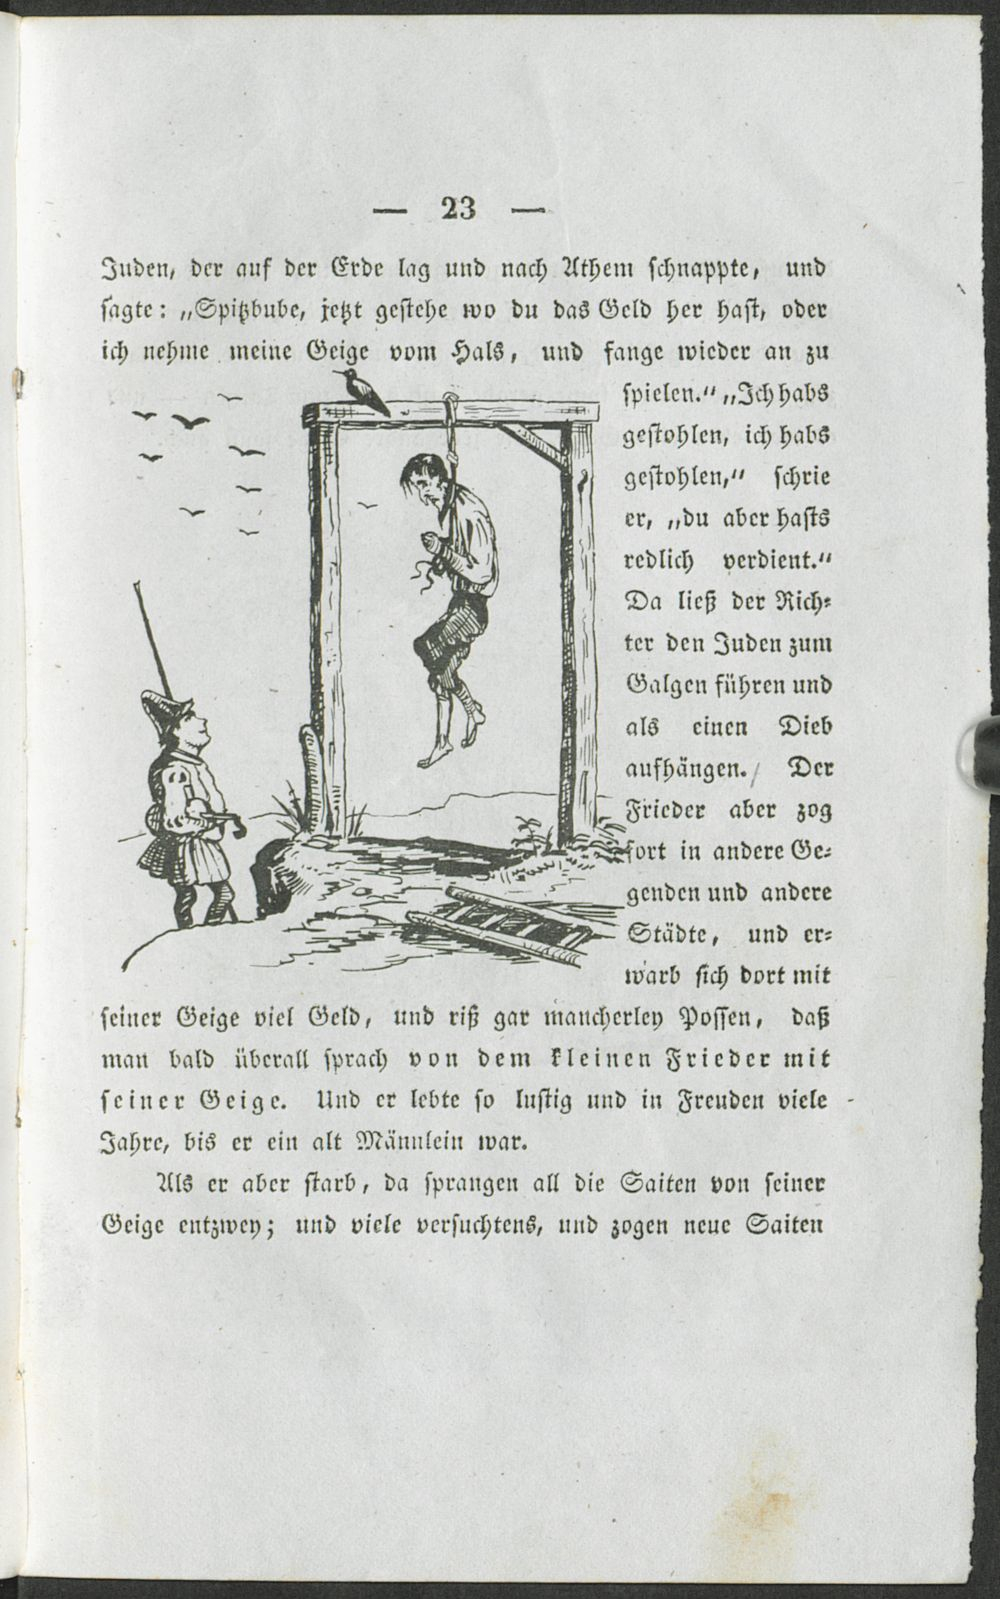 — 23 —
Juden, der auf der Erde lag und nach Athem schnappte, und
sagte: „Spitzbube, jetzt gestehe wo du das Geld her hast, oder
ich nehme meine Geige vom Hals, und fange wieder an zu
spielen.“ „Ich habs
gestohlen, ich habs
gestohlen,“ schrie
er, „du aber hasts
redlich verdient.“
Da ließ der Rich-
ter den Juden zum
Galgen führen und
als einen Dieb
aufhängen. Der
Frieder aber zog
fort in andere Ge-
genden und andere
Städte, und er-
warb sich dort mit
seiner Geige viel Geld, und riß gar mancherley Possen, daß
man bald überall sprach von dem kleinen Frieder mit
seiner Geige. Und er lebte so lustig und in Freuden viele
Jahre, bis er ein alt Männlein war.
Als er aber starb, da sprangen all die Saiten von seiner
Geige entzwey; und viele versuchtens, und zogen neue Saiten